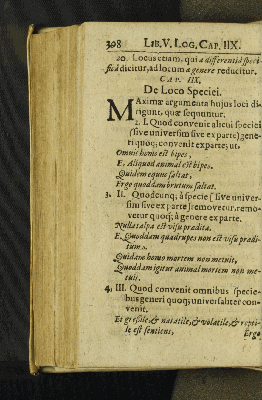 398 LIB. V. LOG. CAP. IIX.
20. Locus etiam, qui à differentiâ speci-
ficâ dicitur, ad locum à genere reducitur.
CAP. IIX.
De Loco Speciei.
MAximæ argumenta hujus loci di-
rigunt, quæ sequuntur.
2. I. Quod convenit alicui speciei
(sive universim sive ex parte) gene-
ri quoq; convenit ex parte; ut,
Omnis homo est bipes,
E. Aliquod animal est bipes.
Quidem equus saltat,
Ergo quoddam brutum saltat.
3. II. Quodcunq; à specie (sive univer-
sim sive ex parte) removetur, remo-
vetur quoq; à genere ex parte.
Nulla talpa est visu prædita.
E. Quoddam quadrupes non est visu prædi-
tum.
Quidam homo mortem non metuit,
Quoddam igitur animal mortem non me-
tuit.
4. III. Quod convenit omnibus specie-
bus generi quoq; universaliter con-
venit.
Et gressile, & natatile, & volatile, & repti-
le est sentiens,
Ergo